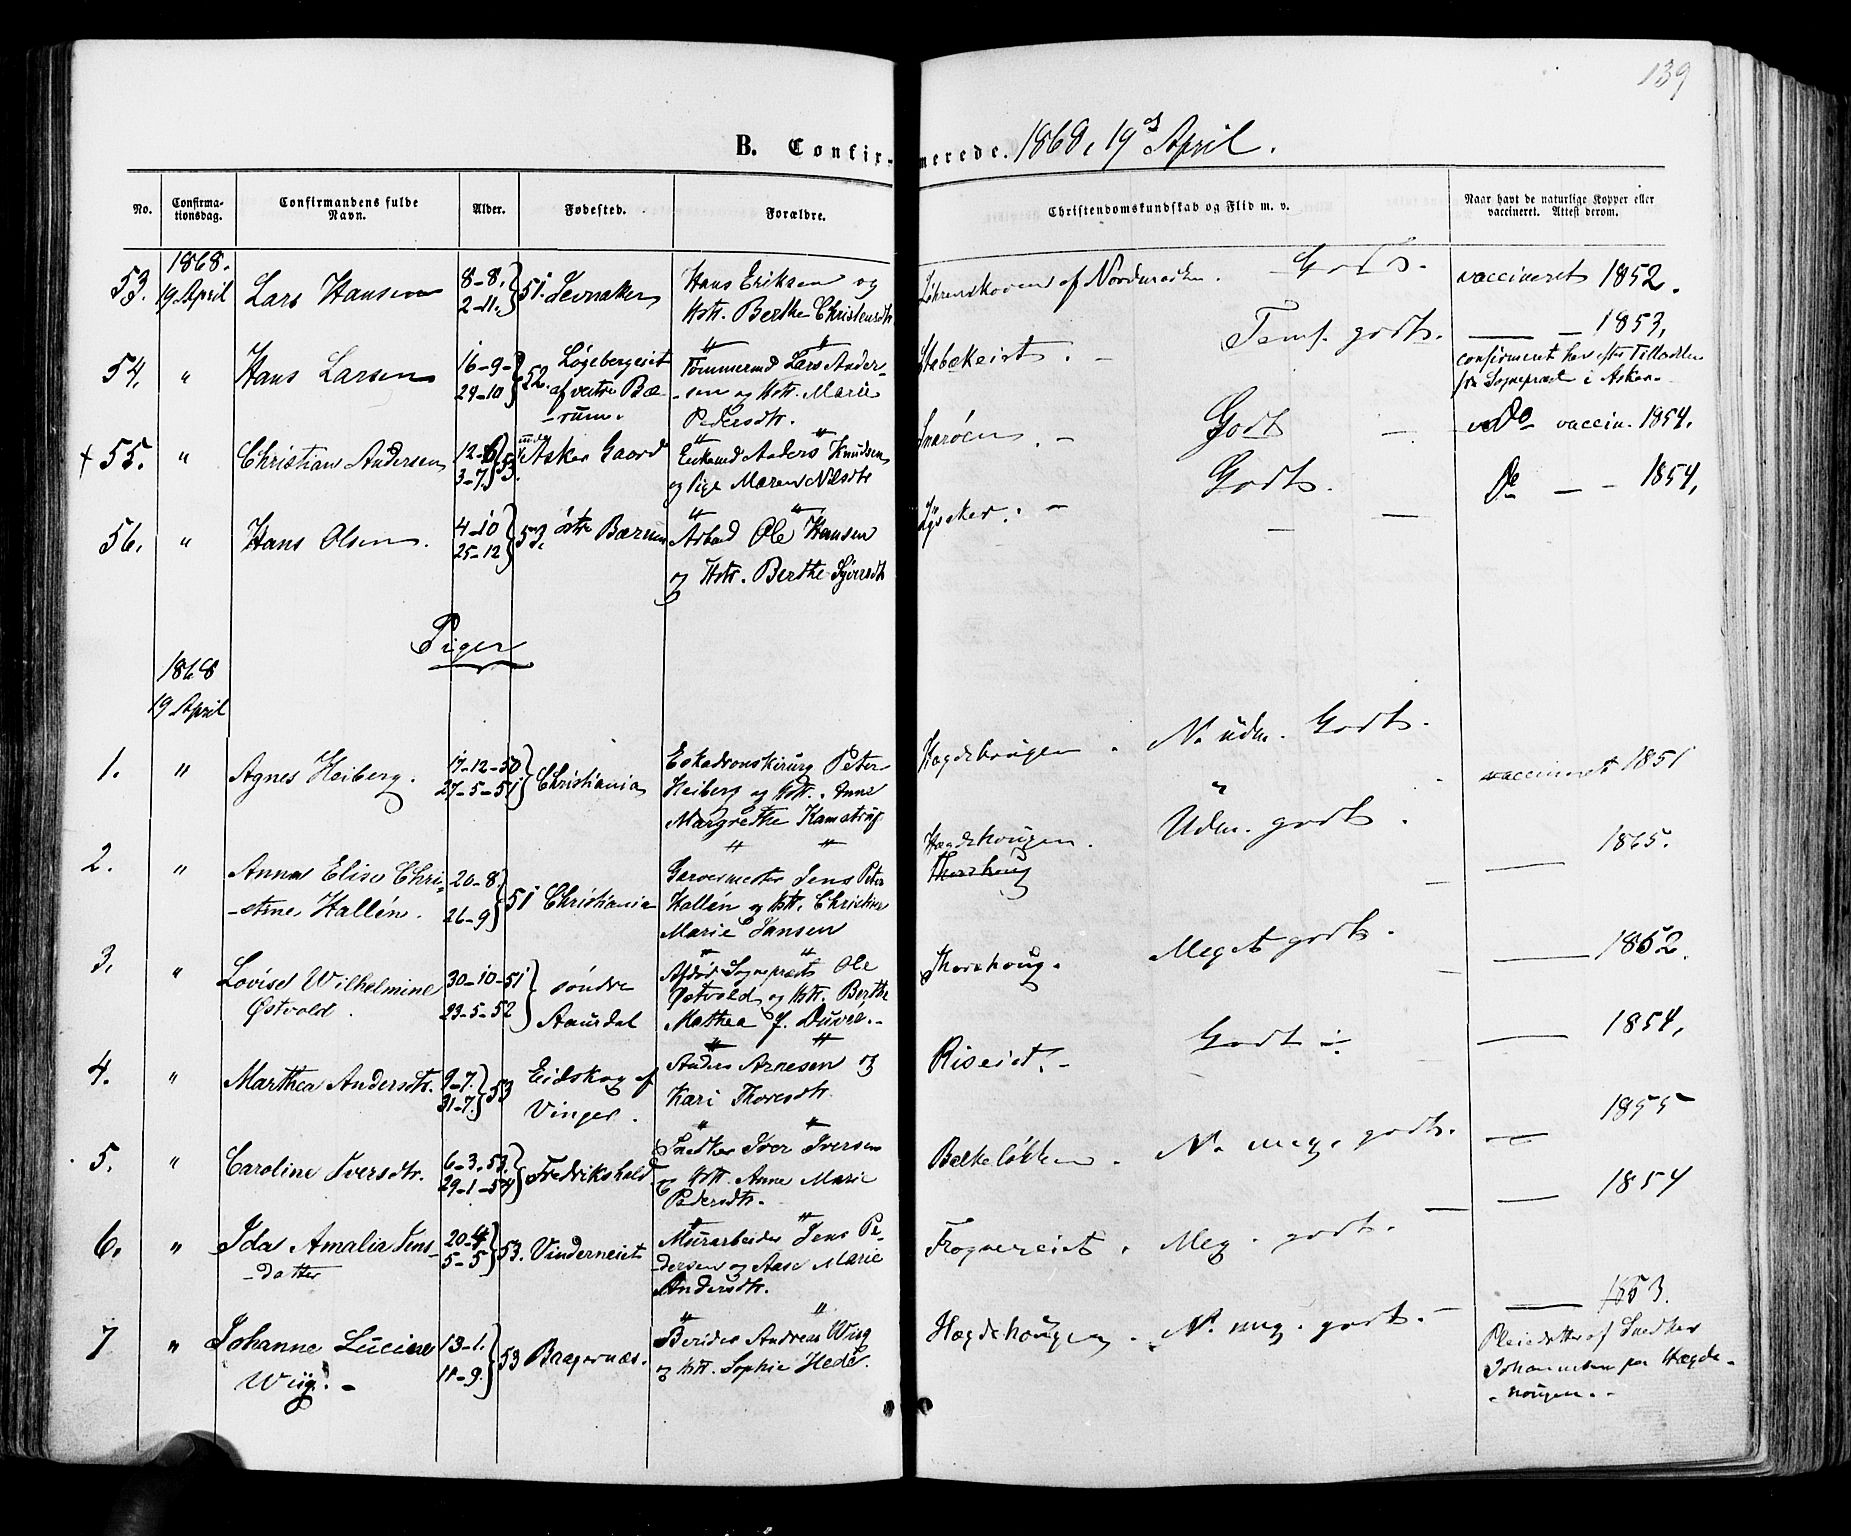 139
B. Confir-merede. 1868, 19de April.
No.
Confirma-
tionsdag.
Confirmandens fulde
Navn.
Alder.
Fødested.
Forældre.
Christendomskundskab og Flid m. v.
Naar havt de naturlige Kopper eller
vaccineret. Attest derom.
1868.
53. 19 April Lars Hansen 8-8. 2-11. 51. Jevnaker
Hans Eriksen og
Hstr. Berthe Christensdtr
af Godt. vaccineret 1852.
54. " Hans Larsen 16-9- 29-10 52.
Løgebergeiet
af vestre Bæ-
-rum.
Tømmermd Lars Ander-
-sen og Hstr. Marie
Pedersdtr.
Stabækeiet. - Temf. godt. — - 1853,
confirmeret her efter Tilladelse
fra Sognepræst i Asker.
+ 55. " Christian Andersen 12-6 3-7. 53. Asker Gaard
Enkemd Anders Knudsen
og Pige Maren Nilsdtr
Snarøen. - Godt - Do vaccin. 1854.
56. " Hans Olsen. 4-10 25-12 53. østre Bærum
Arbmd Ole Hansen
og Hstr. Berthe Syversdtr
Lysaker. - Godt. Do — - 1854,
Piger
1868
19 April
1. " Agnes Heiberg. 17-12-50 27-5-51 Christiania
Eskadronskirurg Peter
Heiberg og Hstr. Anne
Margrethe Kamstrup
Hægdehougen. N. udm. Godt. vaccineret 1851
2. " Anna Elise Chri-
-stine Hallén. 20-8. 26-9 51 Christiania
Garvermester Jens Peter
Hallén og Hstr. Christine
Marie Jansen
Hægdehougen.
Thorshoug
Udm. godt. — 1865.
3. " Lovise Wilhelmine
Østvold. 30-10-51 23-5-52
søndre
Aurdal
Afdød Sognepræst Ole
Østvold og Hstr. Berthe
Mathea J. Duvre.-
Thorshoug. Meget godt. — 1852.
4. " Marthea Andersdtr. 9-7. 31-7. 53
Eidskog af
Vinger.
Anders Arnesen og
Kari Thoresdtr.
Riseiet. - Godt ÷ — 1854,
5. " Caroline Iversdtr. 6-3.53. 29-1-54 Fredrikshald
Snedker Iver Iversen
og Hstr. Anne Marie
Pedersdtr.
Bakkeløkken. N. meg. godt. — 1855
6. " Ida Amalia Jens-
-datter 20-4 5-5 53. Vinderneiet
Murarbeider Jens Pe-
dersen og Aase Marie
Andersdtr.
Frognereiet. Meg. godt. — 1854
7 " Johanne Lucine
Wiig. - 13-1. 11-9. 53 Bragernæs.
Berider Andreas Wiig
og Hstr. Sophie Hede.
Hægdehougen. N. meg. godt. - — 1853.
Pleiedatter af Snedker
Johannesen paa Hægde-
-hougen.-